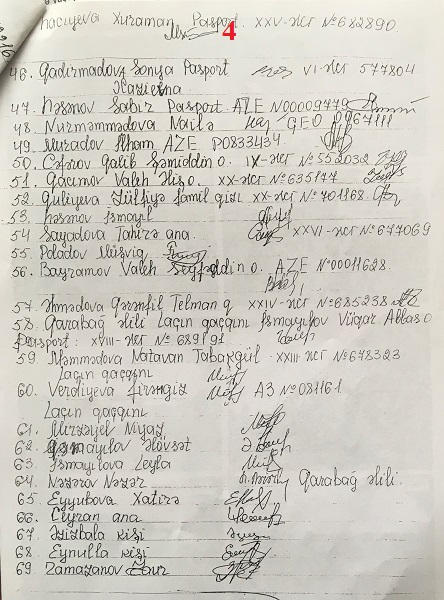 Hacıyeva Xuraman Pasport. XXV-ИГ №682890.
4
46. Qadirmadova Sonya Pasport VI-ИГ 577804
47. Həsənov Sabir Pasport AZE N00009779
48 Nurməmmədova Nailə GEO 0967111
49. Muradov İlham AZE P0833434
50. Cəfərov Qalib Şəmiddin o. IX-ИГ №552032
51. Qasımov Valeh XX-ИГ №635177
52. Quliyeva Zülfiyə Şamil qızı XX-ИГ №701168
53. Həsənov İsmayıl
54 Sayadova Tahirə ana. XXVI-ИГ №677069
55. Poladov Müşviq
56. Bayramov Valeh Seyfəddin o. AZE №00011628
57. Əhmədova Qərənfil Telman q XXIV-ИГ №685238
58. Qarabağ əlili Laçın qaçqını İsmayılov Vüqar Abbas o
Pasport: XVIII-ИГ № 689191
59. Məmmədova Natavan XXIII-ИГ №678323
Laçın qaçqını
60. Verdiyeva Firəngiz A3 №081161
Laçın qaçqını
61. Mirzəyev Niyaz
62. İsmayılov Əlövsət
63. İsmayılova Leyla
64. Nəzərov Nəzər Qarabağ əlili.
65. Eyyubova Xatirə
66. Ceyran ana
67. Əzizbala kişi
68. Eynulla kişi
69 Zamazanov Zaur